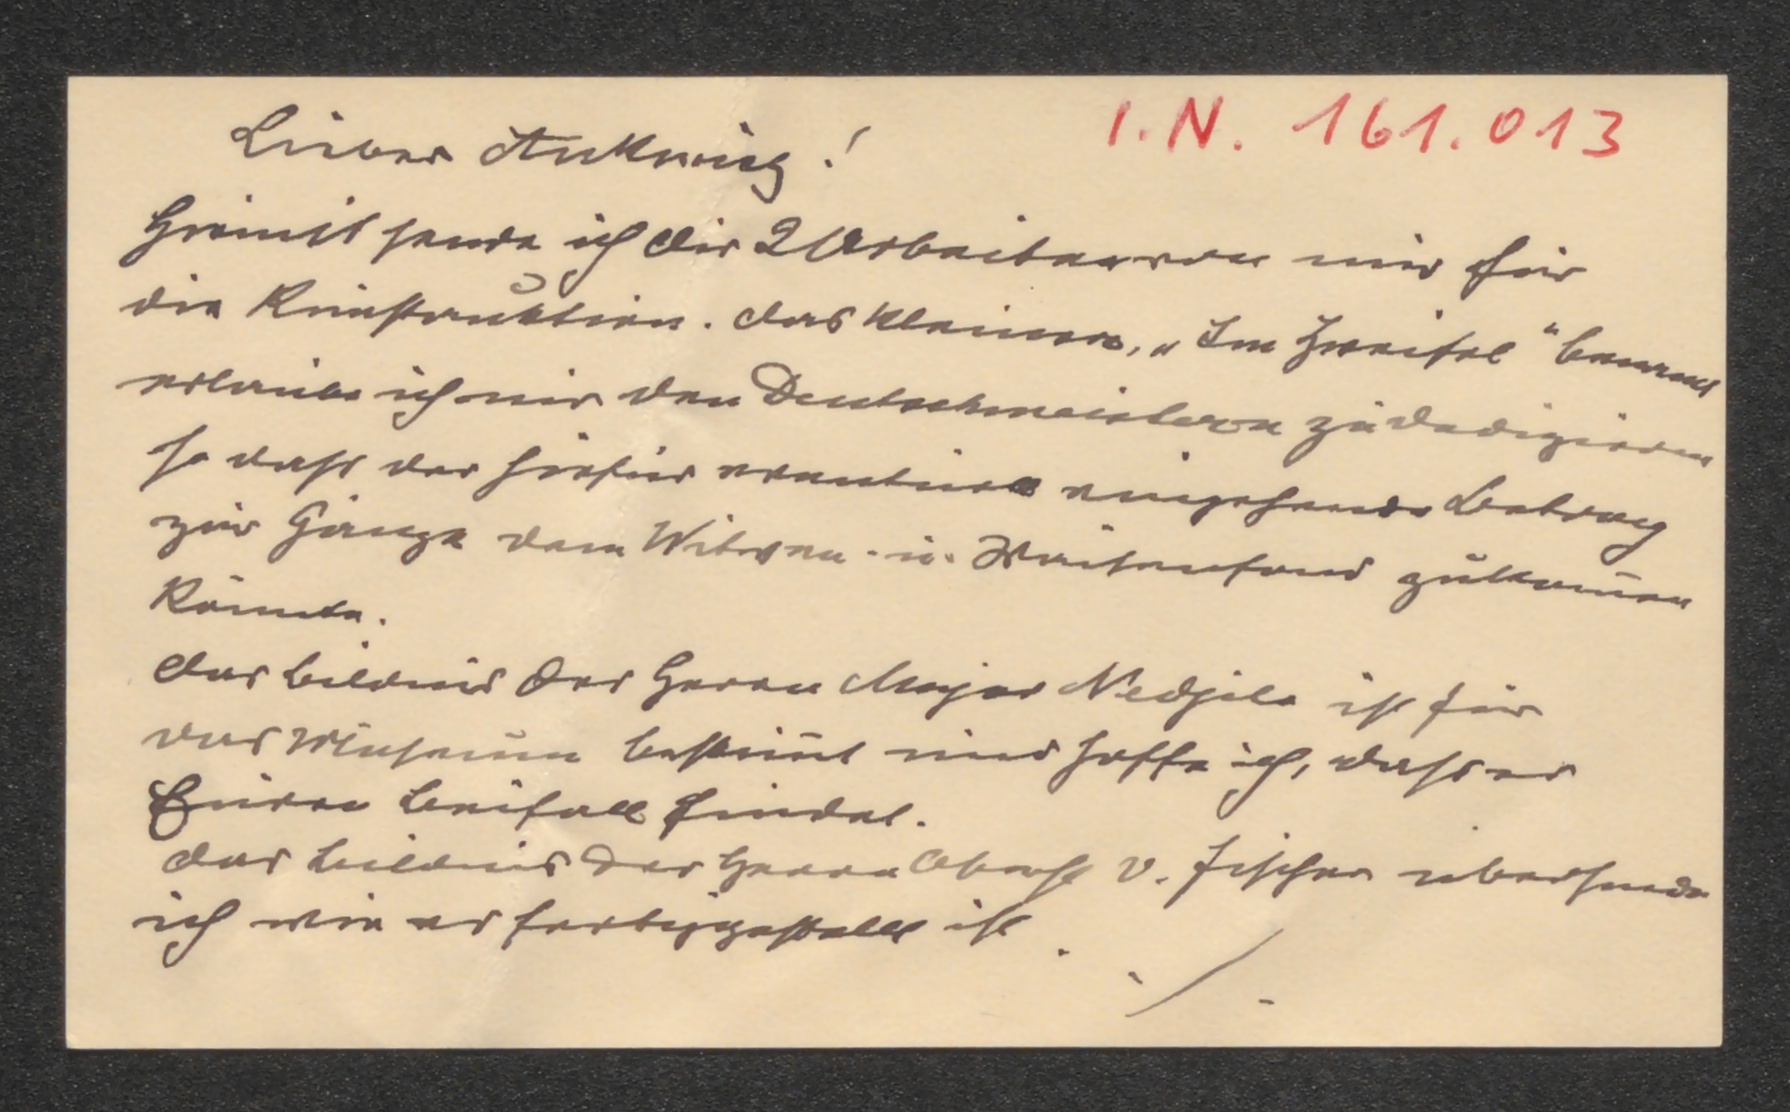 I.N. 161.013
Lieber Ankwicz!
Hiemit sende ich Dir 2 Arbeiten von mir für
die Kunstauktion. Das kleinere, „Im Zweifel“ benannt
erlaube ich mir den Deutschmeistern zu dedizieren
so dass der hiefür eventuell eingehende Betrag
zur Gänze dem Witwen- u. Waisenfond zukom̄en
könnte.
Das Bildnis des Herrn Major Nedjile ist für
das Museum bestim̄t und hoffe ich, dass es
Euren Beifall findet.
Das Bildnis des Herrn Oberst v. Fischer übersende
ich wie es fertiggestellt ist.
./.